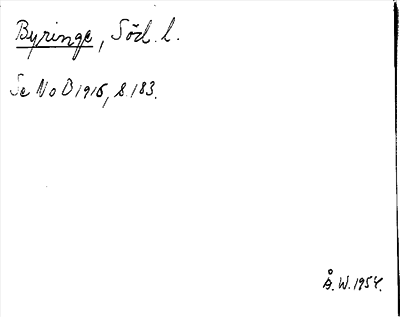 Byringe, Söd. l.
Se NoB 1916, s. 183.
Å. W. 1954.